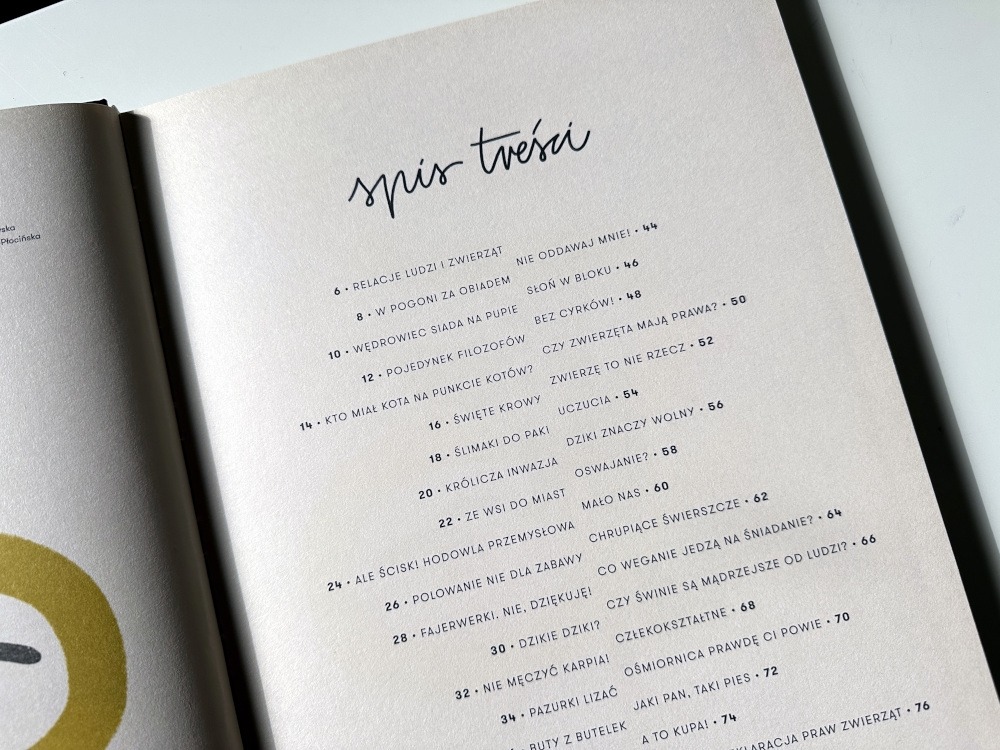 ska
Płocińska
spis treści
6 • RELACJE LUDZI I ZWIERZĄT
8 • W POGONI ZA OBIADEM
10 • WĘDROWIEC SIADA NA PUPIE
12 • POJEDYNEK FILOZOFÓW
14 • KTO MIAŁ KOTA NA PUNKCIE KOTÓW?
16 • ŚWIĘTE KROWY
18 • ŚLIMAKI DO PAKI
20 • KRÓLICZA INWAZJA
22 • ZE WSI DO MIAST
24 • ALE ŚCISK! HODOWLA PRZEMYSŁOWA
26 • POLOWANIE NIE DLA ZABAWY
28 • FAJERWERKI. NIE, DZIĘKUJĘ!
30 • DZIKIE DZIKI?
32 • NIE MĘCZYĆ KARPIA!
34 • PAZURKI LIZAĆ
• BUTY Z BUTELEK
NIE ODDAWAJ MNIE! • 44
SŁOŃ W BLOKU • 46
BEZ CYRKÓW! • 48
CZY ZWIERZĘTA MAJĄ PRAWA? • 50
ZWIERZĘ TO NIE RZECZ • 52
UCZUCIA • 54
DZIKI ZNACZY WOLNY • 56
OSWAJANIE? • 58
MAŁO NAS • 60
CHRUPIĄCE ŚWIERSZCZE • 62
CO WEGANIE JEDZĄ NA ŚNIADANIE? • 64
CZY ŚWINIE SĄ MĄDRZEJSZE OD LUDZI? • 66
CZŁEKOKSZTAŁTNE • 68
OŚMIORNICA PRAWDĘ CI POWIE • 70
JAKI PAN, TAKI PIES • 72
A TO KUPA! • 74
KLARACJA PRAW ZWIERZĄT • 76